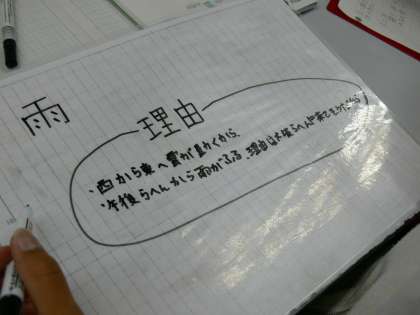 雨
理由
・西から東へ雲が動くから
・午後らへんから雨がふる。理由は大阪らへんが